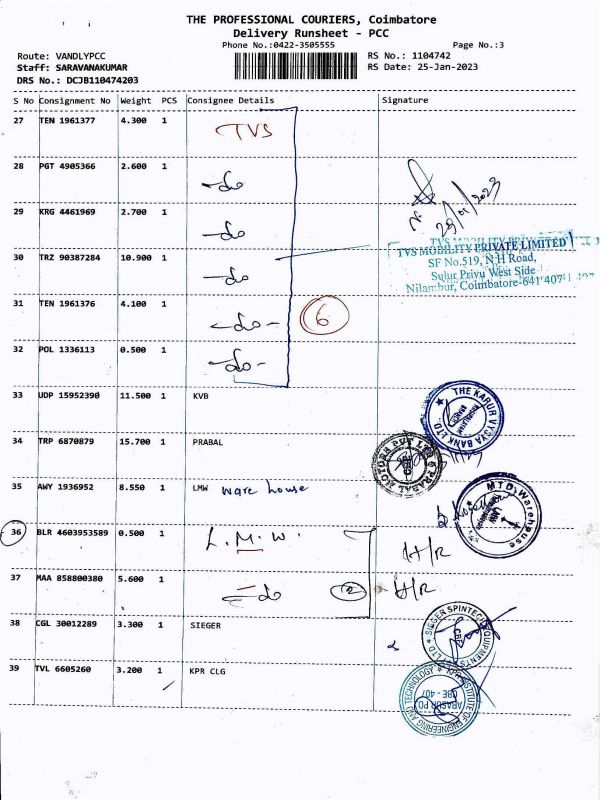 THE PROFESSIONAL COURIERS, Coimbatore
Delivery Runsheet - PCC
Phone No.:0422-3505555 Page No.:3
Route: VANDLYPCC RS No.: 1104742
Staff: SARAVANAKUMAR RS Date: 25-Jan-2023
DRS No.: DCJB110474203
S No Consignment No Weight PCS Consignee Details Signature
27 TEN 1961377 4.300 1 TVS
28 PGT 4905366 2.600 1 -do
29 KRG 4461969 2.700 1 -do
25/01/2023
30 TRZ 90387284 10.900 1 -do
TVS MOBILITY PRIVATE LIMITED
SF No.519, N H Road,
Sulur Privu West Side
Nilambur, Coimbatore-641 407
31 TEN 1961376 4.100 1 -do-
6
32 POL 1336113 0.500 1 -do-
33 UDP 15952390 11.500 1 KVB
THE KARUR VYSYA BANK LTD
34 TRP 6870879 15.700 1 PRABAL
PRABAL MOTORS PVT LTD
35 AWY 1936952 8.550 1 LMW ware house
MTD, Warehouse
36 BLR 4603953589 0.500 1 L.M.W. H/R
37 MAA 858800380 5.600 1 -do 2 H/R
38 CGL 30012289 3.300 1 SIEGER
SIEGER SPINTECH EQUIPMENTS
CBE
39 TVL 6605260 3.200 1 KPR CLG
KPR INSTITUTE OF ENGINEERING AND TECHNOLOGY
ARASUR PO
CBE - 407